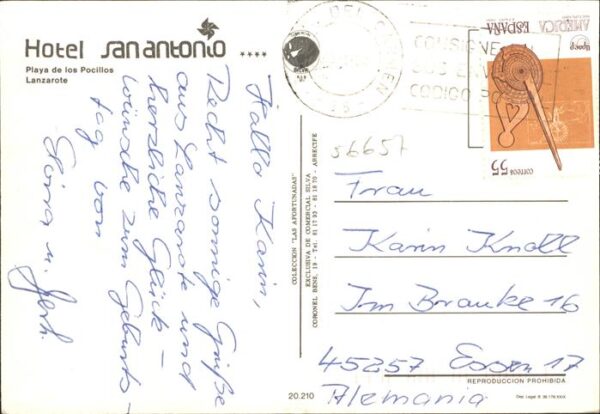 Hotel sanantonio ****
Playa de los Pocillos
Lanzarote
Hallo Karin,
Recht sonnige Grüße
aus Lanzarote und
herzliche Glück-
wünsche zum Geburts-
tag von
COLECCION "LAS AFORTUNADAS"
EXCLUSIVA DE COMERCIAL SILVA
CORONEL BENS, 19 - Tel. 81 17 93 - 81 19 70 - ARRECIFE
20.210
CONSIGNE EN
CODIGO
AMERICA
ESPAÑA
upaep
CORREOS
55
56657
Frau
Karin Knoll
Im Brauke 16
45257 Essen 17
Alemania
REPRODUCCION PROHIBIDA